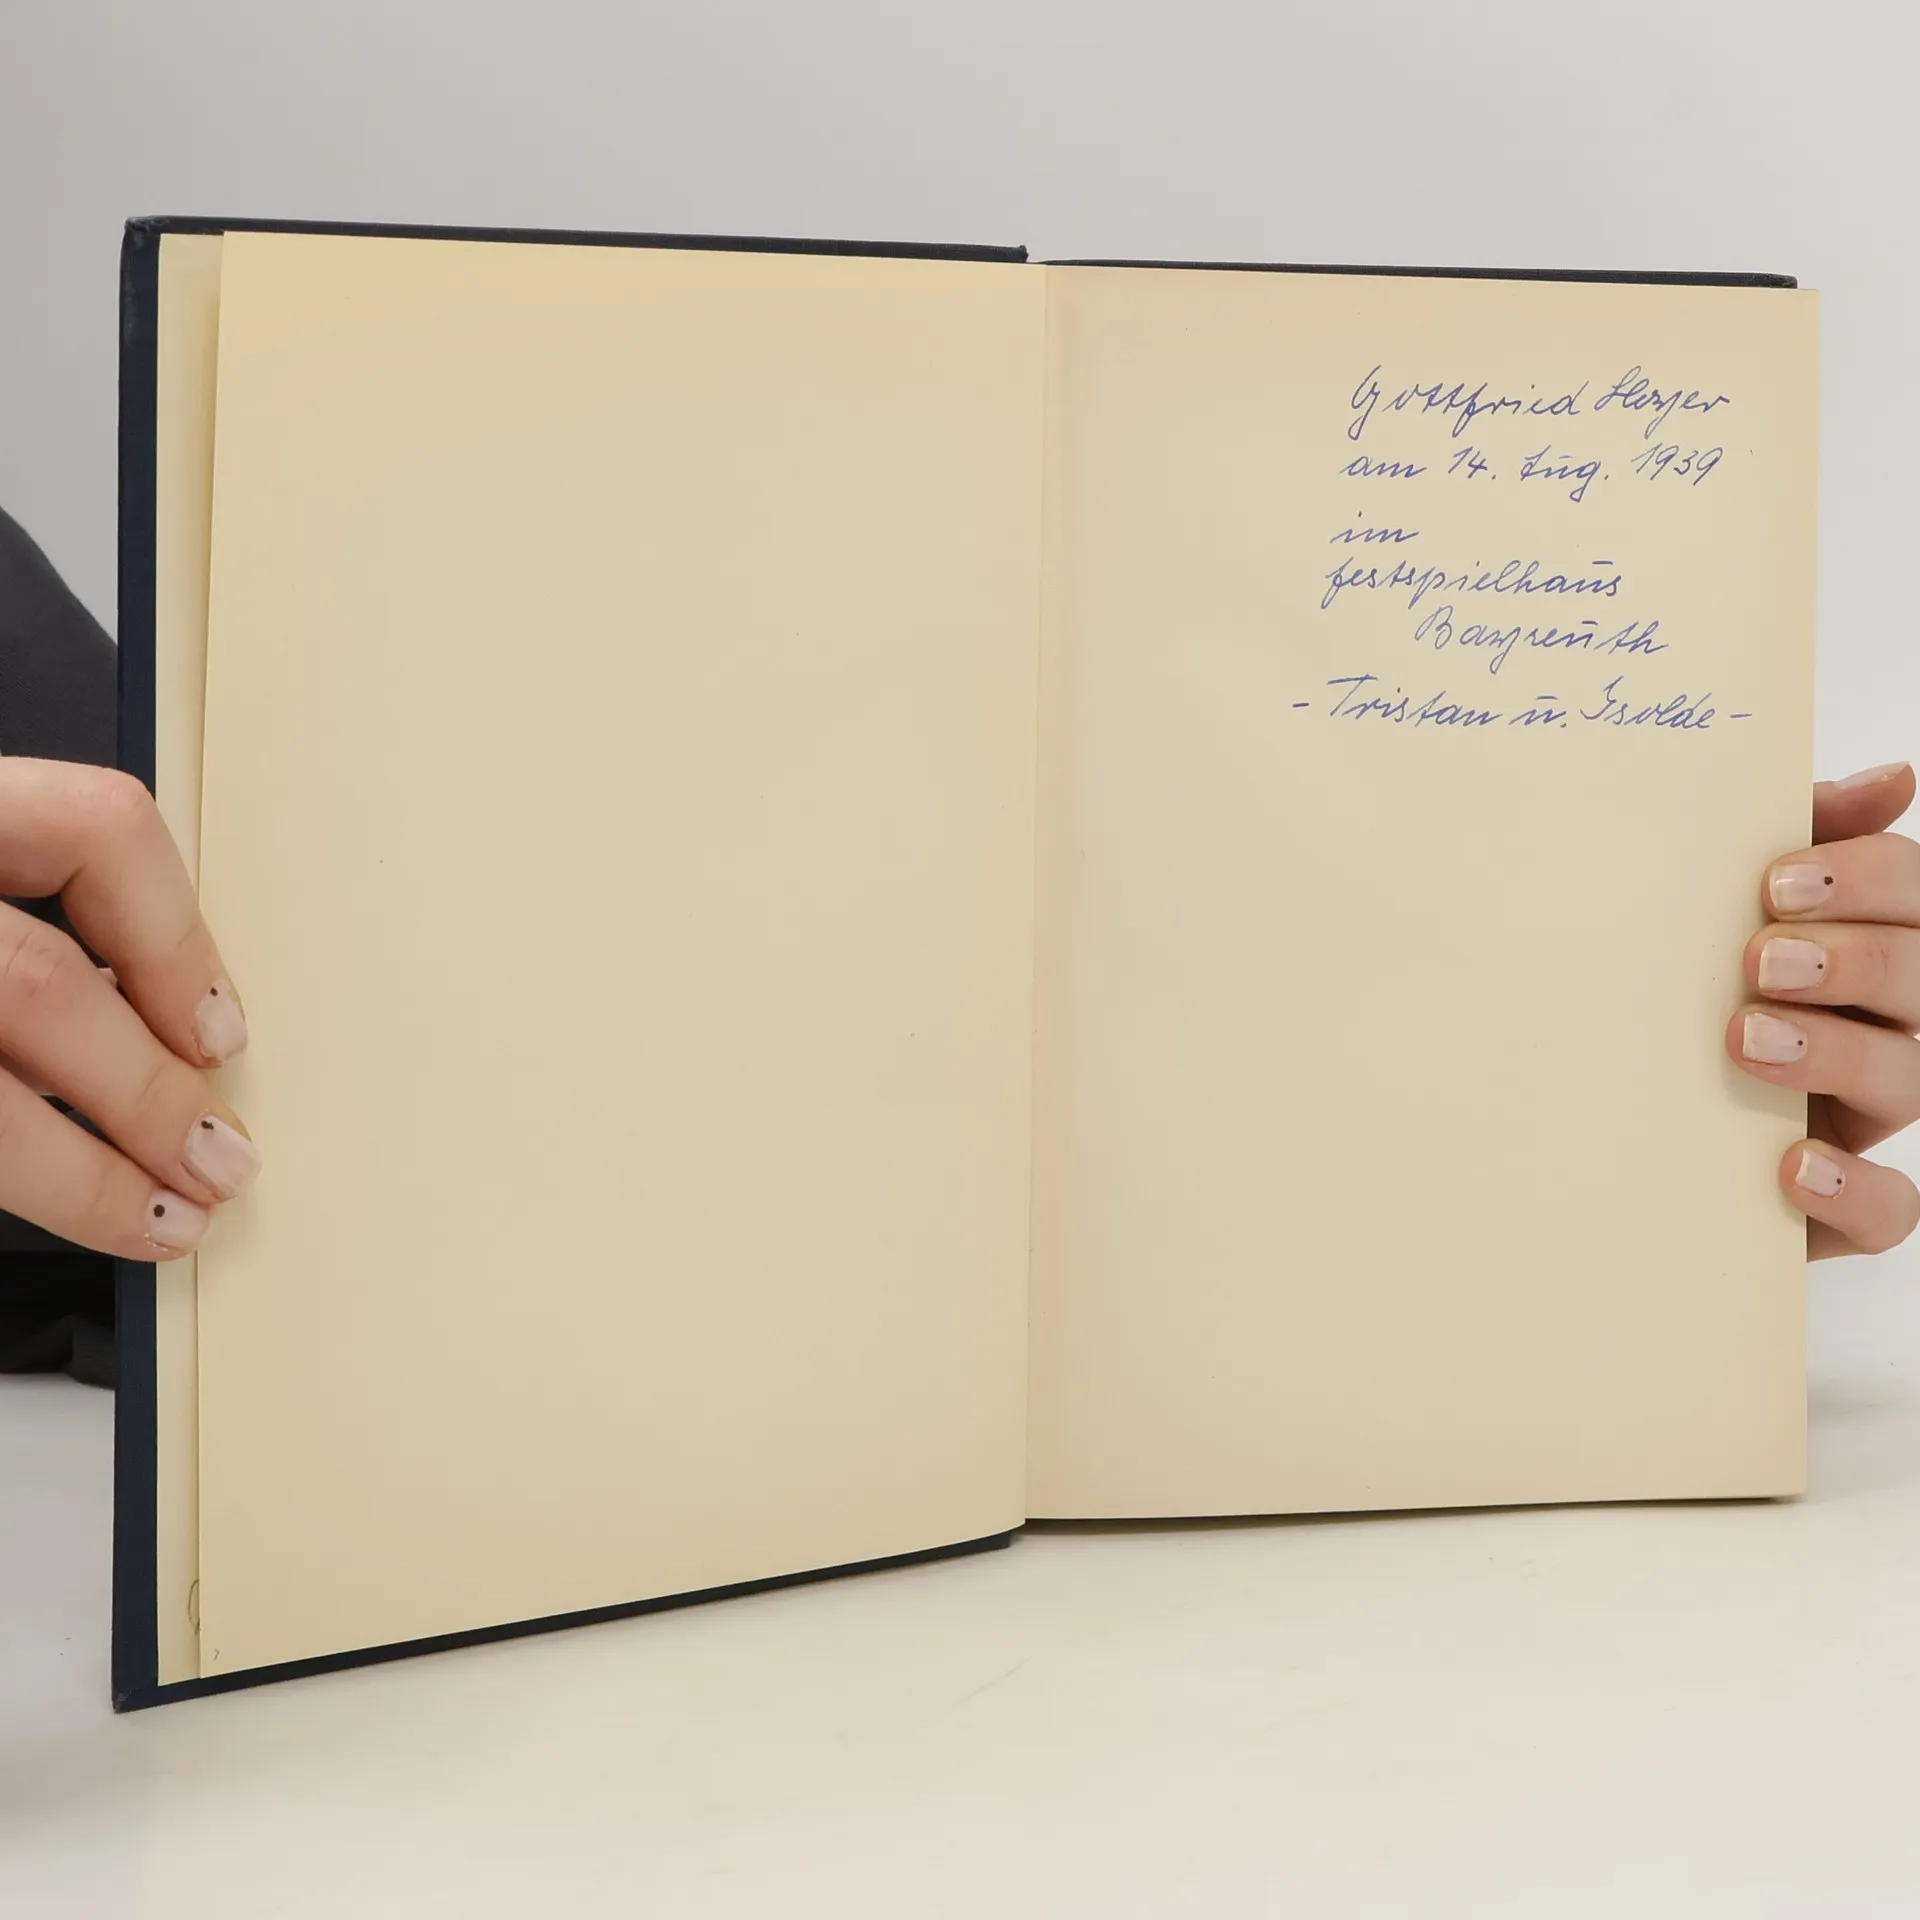 Gottfried Heyer
am 14. Aug. 1939
im
festspielhaus
Bayreuth
- Tristan u. Isolde -